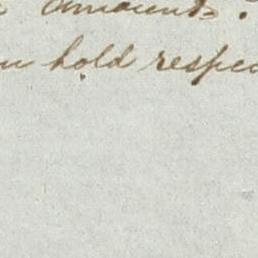 amounts.
hold respec